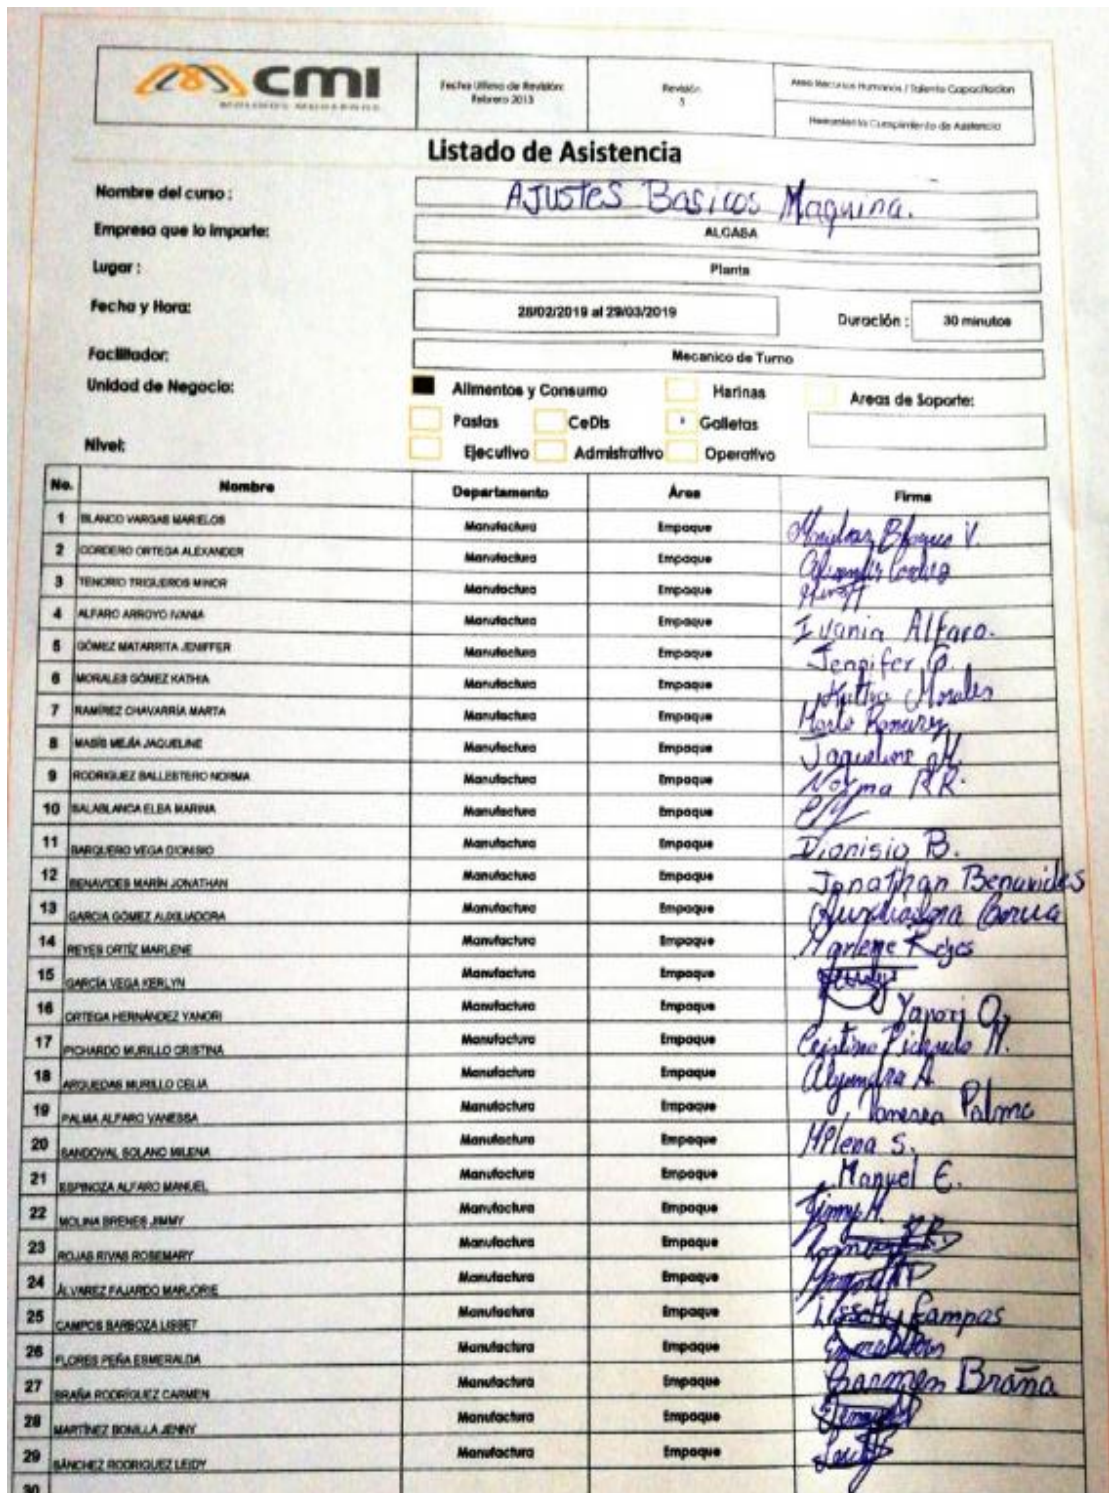 CMI
MOLINOS MODERNOS
Fecha Ultima de Revisión:
Febrero 2013
Revisión
Area Recursos Humanos / Talento Capacitacion
Herramienta Cumplimiento de Asistencia
Listado de Asistencia
Nombre del curso : AJUSTES BASICOS Maquina.
Empresa que lo imparte: ALCASA
Lugar : Planta
Fecha y Hora: 28/02/2019 al 29/03/2019 Duración : 30 minutos
Facilitador: Mecanico de Turno
Unidad de Negocio: Alimentos y Consumo Harinas Areas de Soporte:
Pastas CeDis Galletas
Nivel: Ejecutivo Admistrativo Operativo
No. Nombre Departamento Área Firma
1 BLANCO VARGAS MARIELOS Manufactura Empaque
2 CORDERO ORTEGA ALEXANDER Manufactura Empaque
3 TENORIO TRIGUEROS MINOR Manufactura Empaque
4 ALFARO ARROYO IVANIA Manufactura Empaque Ivania Alfaro.
5 GÓMEZ MATARRITA JENIFFER Manufactura Empaque Jennifer G.
6 MORALES GÓMEZ KATHIA Manufactura Empaque Kathia Morales
7 RAMÍREZ CHAVARRÍA MARTA Manufactura Empaque Marta Ramirez
8 MASÍS MEJÍA JAQUELINE Manufactura Empaque Jaqueline M.
9 RODRIGUEZ BALLESTERO NORMA Manufactura Empaque Norma R.R.
10 SALABLANCA ELBA MARINA Manufactura Empaque
11 BARQUERO VEGA DIONISIO Manufactura Empaque Dionisio B.
12 BENAVIDES MARÍN JONATHAN Manufactura Empaque Jonathan Benavides
13 GARCIA GÓMEZ AUXILIADORA Manufactura Empaque Auxiliadora Garcia
14 REYES ORTÍZ MARLENE Manufactura Empaque Marlene Reyes
15 GARCÍA VEGA KERLYN Manufactura Empaque
16 ORTEGA HERNÁNDEZ YANORI Manufactura Empaque Yanori O.
17 PICHARDO MURILLO CRISTINA Manufactura Empaque Cristina Pichardo M.
18 ARGUEDAS MURILLO CELIA Manufactura Empaque Alejandra A.
19 PALMA ALFARO VANESSA Manufactura Empaque Vanessa Palma
20 SANDOVAL SOLANO MILENA Manufactura Empaque Milena S.
21 ESPINOZA ALFARO MANUEL Manufactura Empaque Manuel E.
22 MOLINA BRENES JIMMY Manufactura Empaque Jimmy M.
23 ROJAS RIVAS ROSEMARY Manufactura Empaque
24 ÁLVAREZ FAJARDO MARJORIE Manufactura Empaque
25 CAMPOS BARBOZA LISSET Manufactura Empaque Lisseth Campos
26 FLORES PEÑA ESMERALDA Manufactura Empaque
27 BRAÑA RODRÍGUEZ CARMEN Manufactura Empaque Carmen Braña
28 MARTÍNEZ BONILLA JENNY Manufactura Empaque
29 SÁNCHEZ RODRIGUEZ LEIDY Manufactura Empaque
30